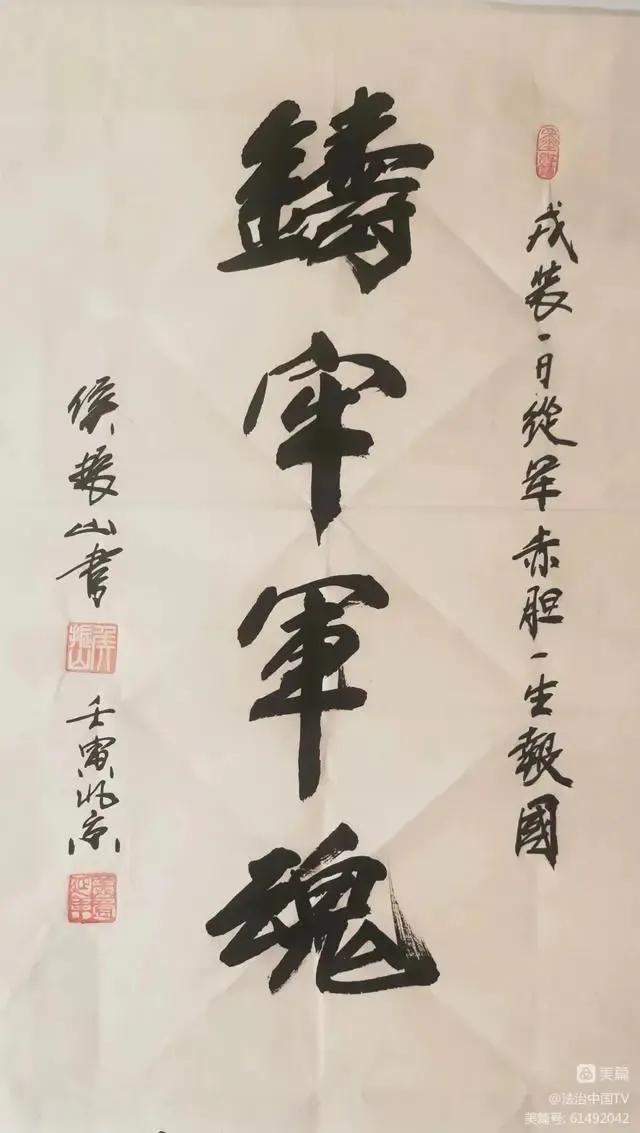 戎裝一日從軍赤胆一生報國
鑄牢軍魂
侯振山書
壬寅北京
美篇
@法治中国TV
美篇号: 61492042